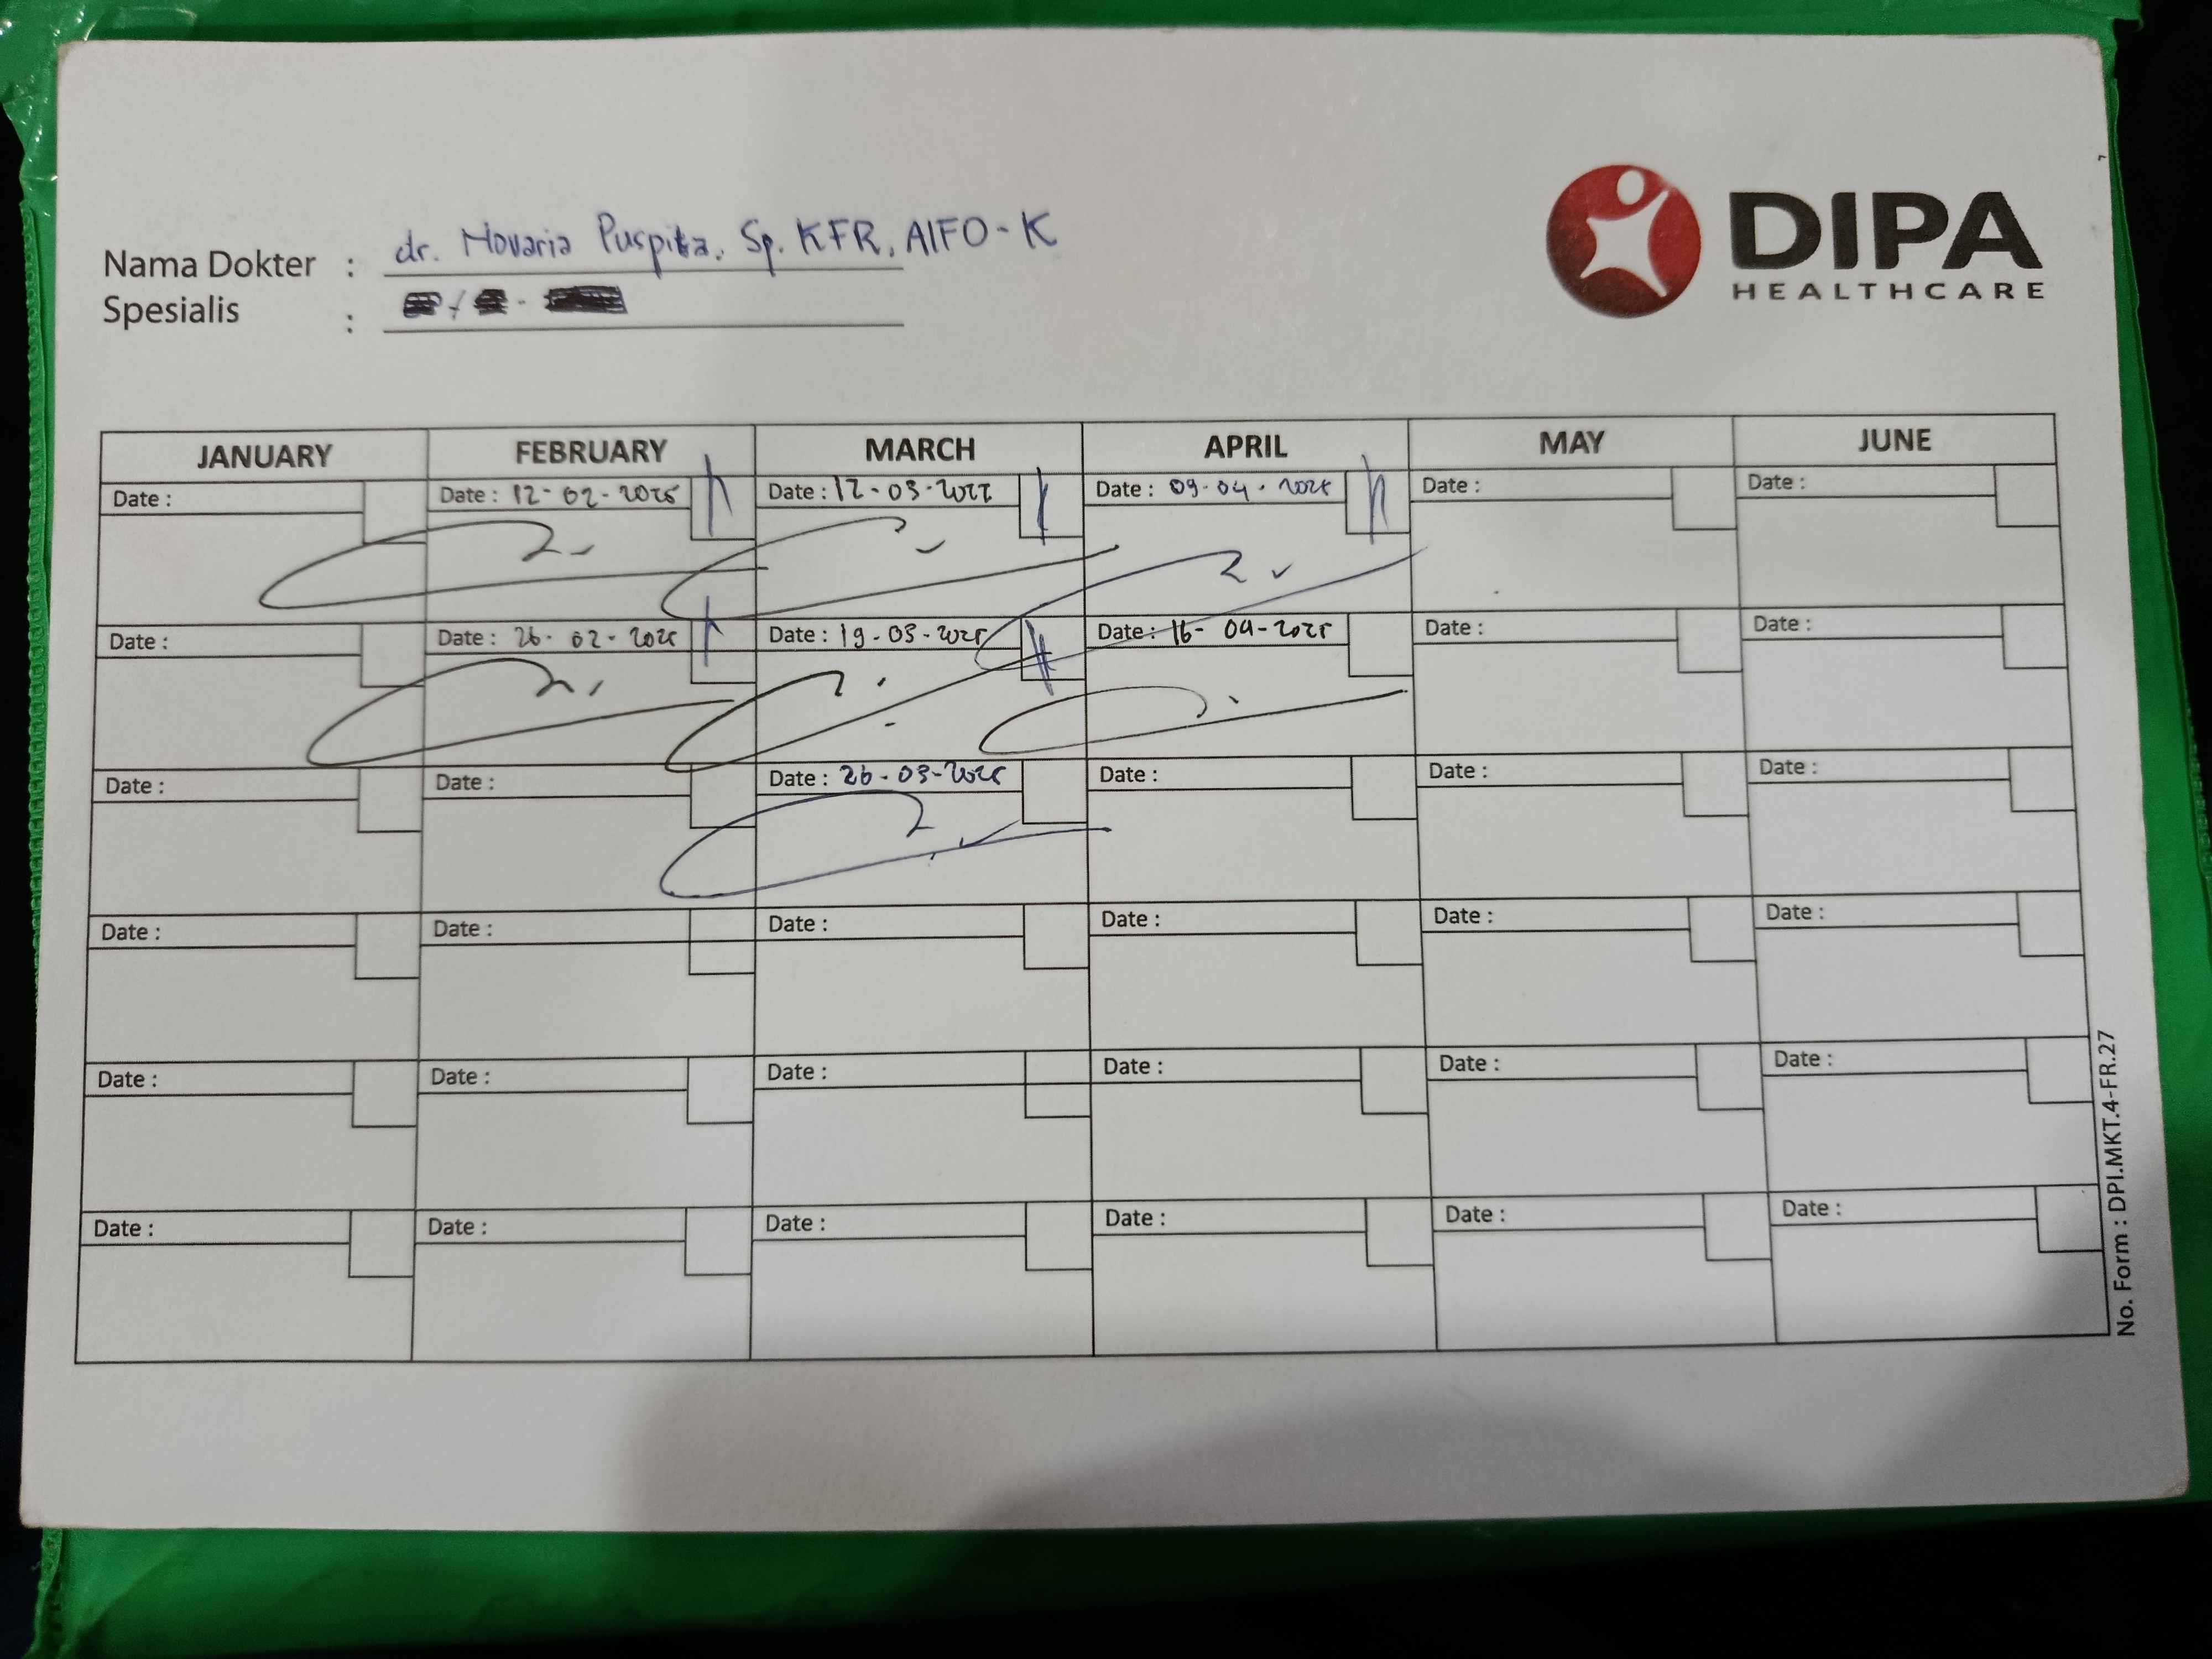 DIPA
HEALTHCARE
Nama Dokter : dr. Novaria Puspita, Sp. KFR, AIFO-K
Spesialis :
JANUARY FEBRUARY MARCH APRIL MAY JUNE
Date : Date : 12-02-2025 Date : 12-03-2025 Date : 09-04-2025 Date : Date :
Date : Date : 26-02-2025 Date : 19-03-2025 Date : 16-04-2025 Date : Date :
Date : Date : Date : 26-03-2025 Date : Date : Date :
Date : Date : Date : Date : Date : Date :
Date : Date : Date : Date : Date : Date :
Date : Date : Date : Date : Date : Date :
No. Form : DPI.MKT.4-FR.27